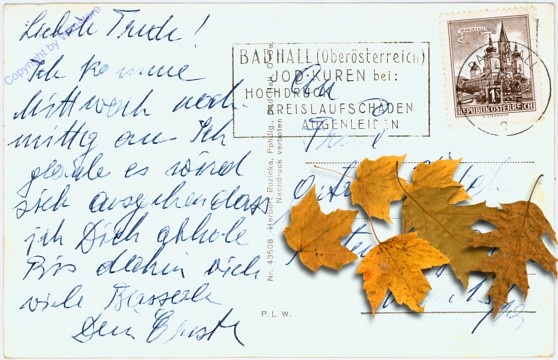 Liebste Trude!
Ich komme
Mittwoch nach-
mittag an. Ich
glaube es wird
sich ausgehen dass
ich Dich abhole
Bis dahin viele
viele Busserln
Dein Ernst
Copyright by
BAD HALL (Oberösterreich)
JOD-KUREN bei:
HOCHDRUCK
KREISLAUFSCHÄDEN
AUGENLEIDEN
BAD HALL
REPUBLIK ÖSTERREICH
Nr. 43508 - Herbert Ruzicka, Fotohdlg., Bad Hall, O.Ö.
Nachdruck verboten
P. L. W.